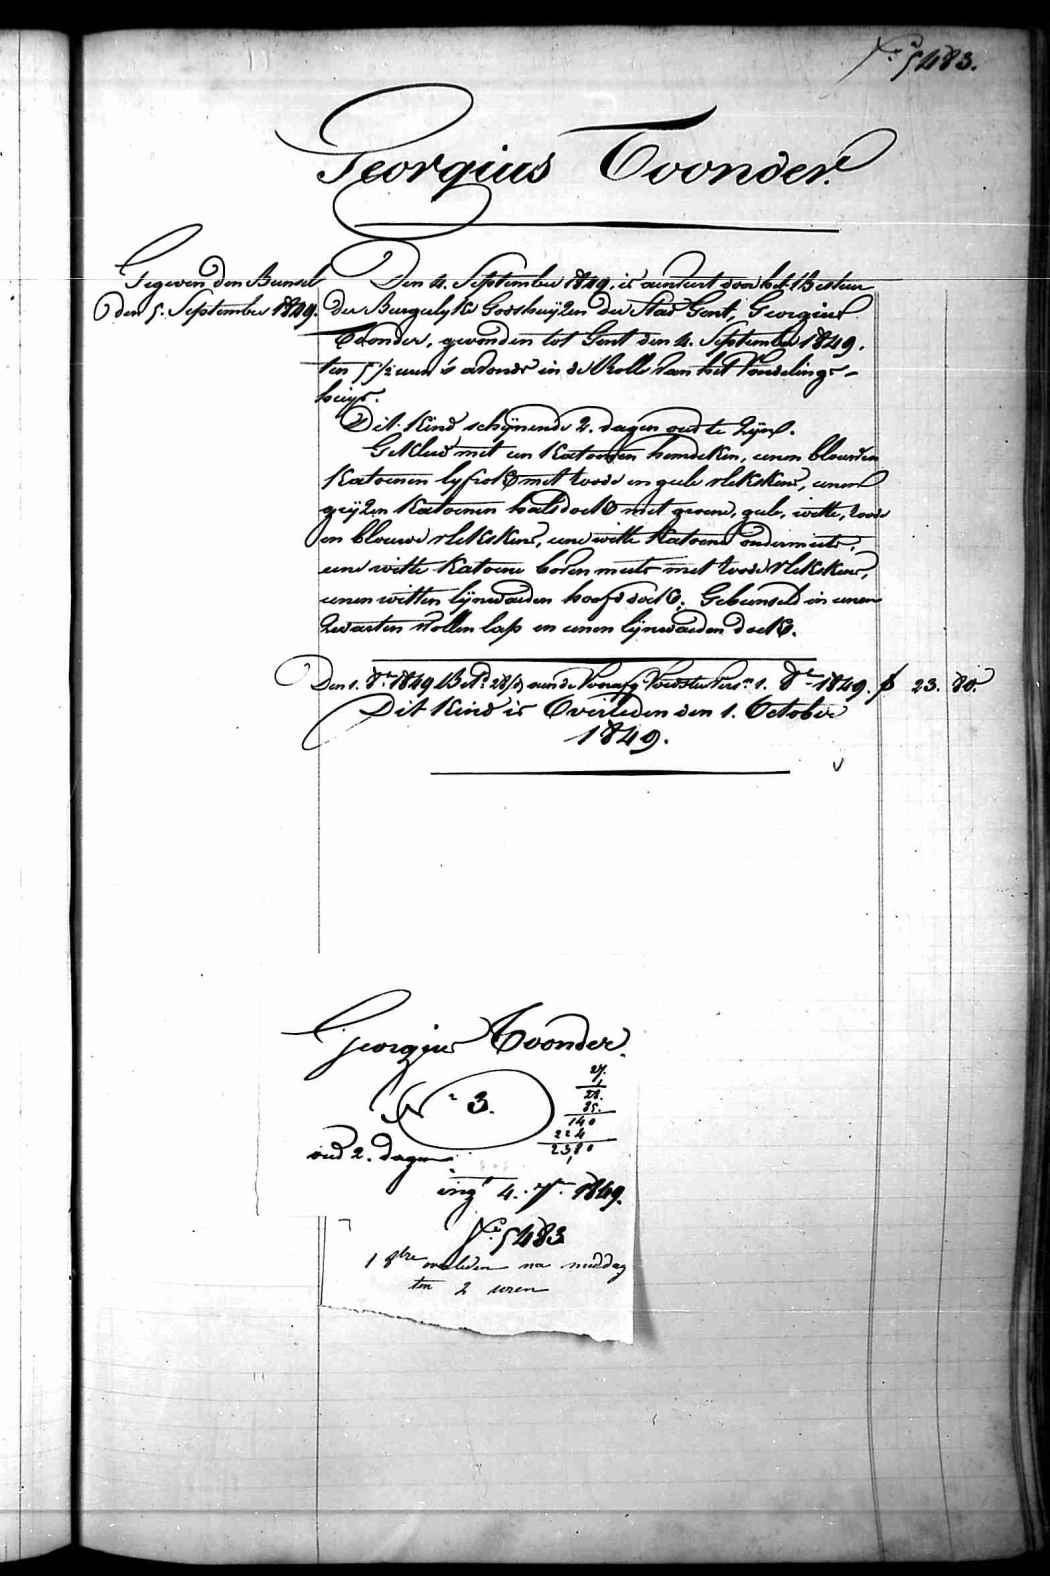 N.° 5483.
Georgius Toonder.
Gegeven den Bunsel
den 5. September 1849.
Den 4. September 1849, is aenveert door het Bestuur
der Burgelyke Godshuyzen der Stad Gent, Georgius
Toonder, gevonden tot Gent den 4. September 1849.
ten 5 1/2 uren 's avonds in de Rolle van het Vondelings-
huys.
Dit Kind schynende 2. dagen oud te Zyn.
Gekleed met een Katoenen hemdeken, eenen blauwen
Katoenen lyfrok met roode en geele vlekskens, eenen
gryzen Katoenen halsdoek met groene, gele, witte, roode
en blauwe vlekskens, eene witte Katoene ondermuts,
eene witte Katoene bovenmuts met roode vlekskens,
eenen witten lynwaeden hoofddoek. Gebunseld in eenen
zwarten wollen lap en eenen lynwaeden doek.
Den 1. 8.r 1849 Bet.d 28/d aen de Voedster 1. 8.r 1849. f 23. 80.
Dit Kind is Overleden den 1. October
1849.
Georgius Toonder.
N.° 3.
27.
1
28.
85.
140
224
2380
oud 2. dagen
ing.t 4. 7.r 1849.
N.° 5483
1 8bre overleden na middag
ten 2 uren